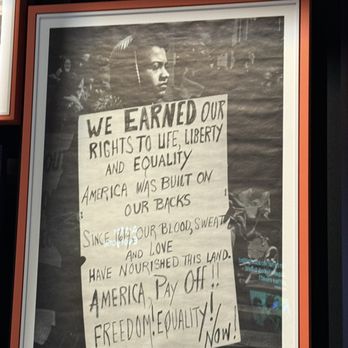 WE EARNED OUR
RIGHTS TO LIFE, LIBERTY
AND EQUALITY
AMERICA WAS BUILT ON
OUR BACKS
SINCE 1619 OUR BLOOD, SWEAT
AND LOVE
HAVE NOURISHED THIS LAND.
AMERICA, PAY OFF!!
FREEDOM! EQUALITY!
NOW!